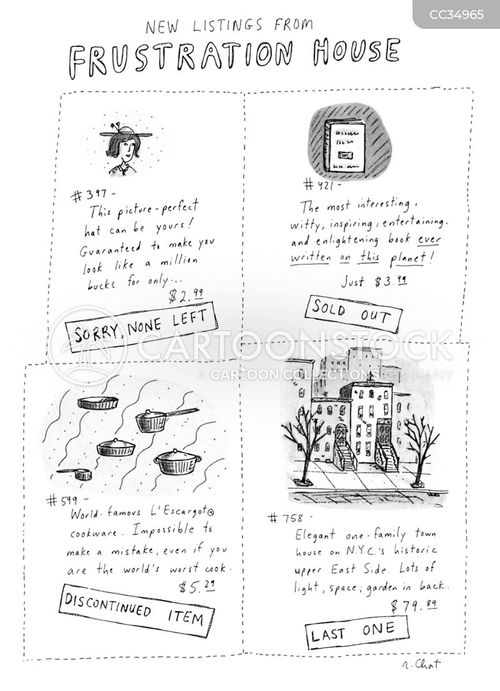 CC34965
NEW LISTINGS FROM
FRUSTRATION HOUSE
#397-
This picture-perfect
hat can be yours!
Guaranteed to make you
look like a million
bucks for only...
$2.99
SORRY, NONE LEFT
#421-
The most interesting,
witty, inspiring, entertaining,
and enlightening book ever
written on this planet!
Just $3.99
SOLD OUT
CARTOONSTOCK
A CARTOON COLLECTIONS COMPANY
#599-
World-famous L'Escargot®
cookware. Impossible to
make a mistake, even if you
are the world's worst cook.
$5.29
DISCONTINUED ITEM
#758-
Elegant one-family town
house on N.Y.C.'s historic
upper East Side. Lots of
light, space; garden in back.
$79.89
LAST ONE
r. Chast